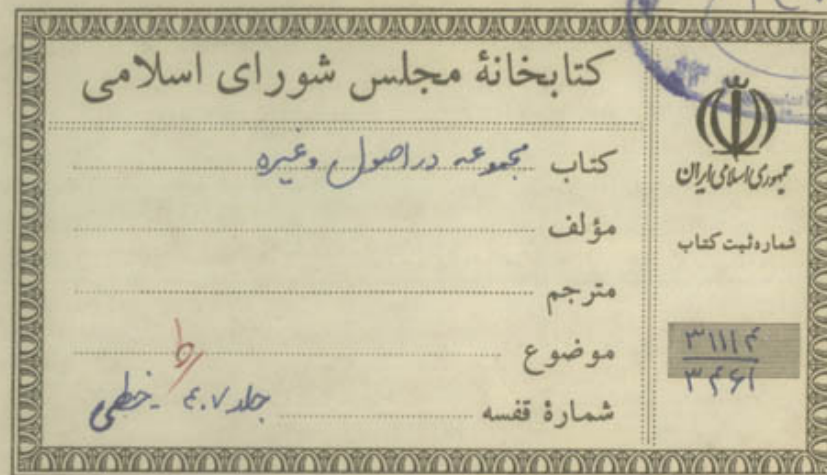 کتابخانهٔ مجلس شورای اسلامی
کتاب مجموعه در اصول و غیره
مؤلف
مترجم
موضوع
شمارهٔ قفسه جلد ۴۰۷ خطی
جمهوری اسلامی ایران
شماره ثبت کتاب